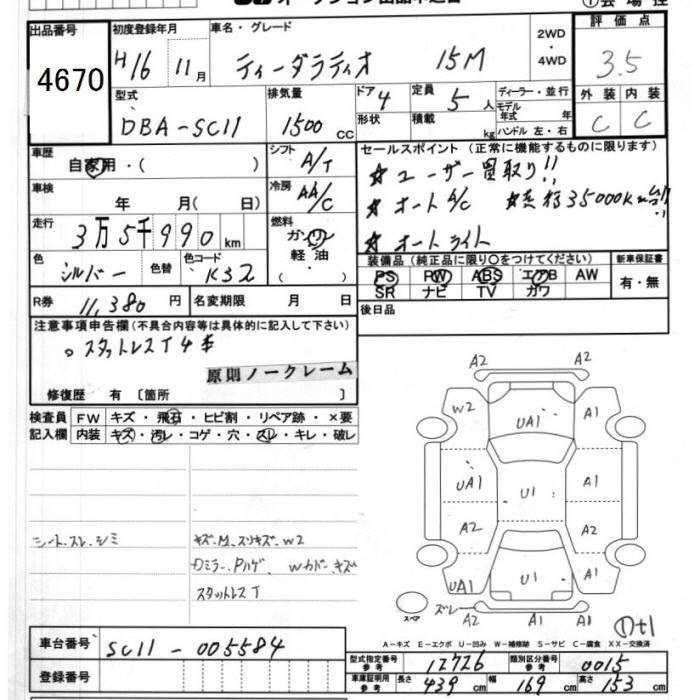 出品番号 初度登録年月 車名・グレード 2WD・4WD 評価点
4670 H16 11月 ティーダラティオ 15M 3.5
型式 排気量 ドア 4 定員 5人 ディーラー・並行 外装 内装
DBA-SC11 1500cc 形状 積載 kg モデル年式 年 C C
ハンドル 左・右
車歴 自家用・( ) シフト A/T セールスポイント(正常に機能するものに限ります)
☆ユーザー買取り!!
車検 年 月( 日) 冷房 AA/C ☆オートA/C ☆走行35000Km台!!
走行 3万5千990km 燃料 ガソリン 軽油・( ) ☆オートライト
装備品(純正品に限り○をつけてください) 新車保証書
色 シルバー 色替 色コード K32 PS PW ABS エアB AW 有・無
SR ナビ TV カワ
R券 11,380円 名変期限 月 日 後日品
注意事項申告欄(不具合内容等は具体的に記入して下さい)
。スタットレスT4本
原則ノークレーム
修復歴 有〔箇所 〕
検査員 FW キズ・飛石・ヒビ割・リペア跡・×要
記入欄 内装 キズ・汚レ・コゲ・穴・スレ・キレ・破レ
シート.スレ.シミ キズ.M.スリキズ.W2
Dミラー.Pハゲ Wカバーキズ
スタットレスT
A2 A2
W2 UA1 A1
UA1 U1 A1
A2 A2
UA1 U1 A1
スペア ズレ A2 A1 A1
①t1
A-キズ E-エクボ U-凹み W-補修跡 S-サビ C-腐食 XX-交換済
車台番号 SC11-005584
型式指定番号参考 12726 類別区分番号参考 0015
登録番号 車庫証明用参考 長さ 439cm 幅 169cm 高さ 153cm